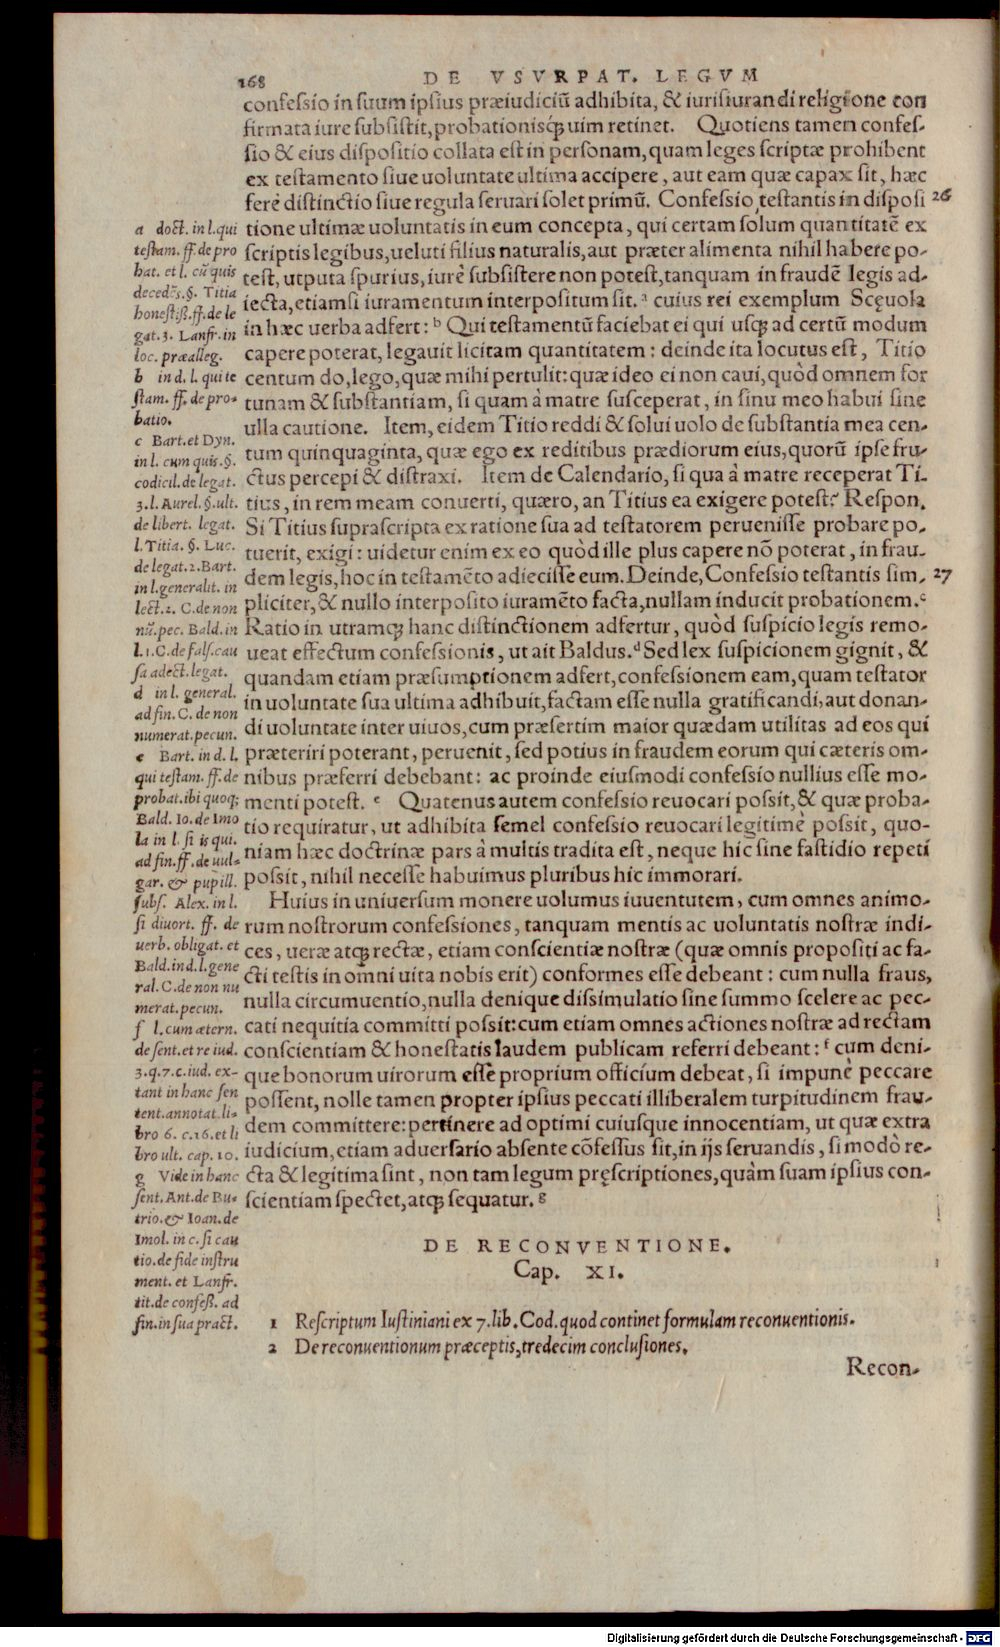 168
DE VSVRPAT. LEGVM
confessio in suum ipsius præiudiciũ adhibita, & iurisiurandi religione con
firmata iure subsistit, probationisq́; uim retinet. Quotiens tamen confes-
sio & eius dispositio collata est in personam, quam leges scriptæ prohibent
ex testamento siue uoluntate ultima accipere, aut eam quæ capax sit, hæc
ferè distinctio siue regula seruari solet primũ. Confessio testantis in disposi
26
tione ultimæ uoluntatis in eum concepta, qui certam solum quantitatẽ ex
scriptis legibus, ueluti filius naturalis, aut præter alimenta nihil habere po-
test, utputa spurius, iurè subsistere non potest, tanquam in fraudẽ legis ad-
iecta, etiamsi iuramentum interpositum sit. a cuius rei exemplum Scęuola
in hæc uerba adfert: b Qui testamentũ faciebat ei qui usq; ad certũ modum
capere poterat, legauit licitam quantitatem: deinde ita locutus est, Titio
centum do, lego, quæ mihi pertulit: quæ ideo ei non caui, quòd omnem for
tunam & substantiam, si quam à matre susceperat, in sinu meo habui sine
ulla cautione. Item, eidem Titio reddi & solui uolo de substantia mea cen-
tum quinquaginta, quæ ego ex reditibus prædiorum eius, quorũ ipse fru-
ctus percepi & distraxi. Item de Calendario, si qua à matre receperat Ti-
tius, in rem meam conuerti, quæro, an Titius ea exigere potest? Respon.
Si Titius suprascripta ex ratione sua ad testatorem peruenisse probare po-
tuerit, exigi: uidetur enim ex eo quòd ille plus capere nõ poterat, in frau-
dem legis, hoc in testamẽto adiecisse eum. Deinde, Confessio testantis sim-
27
pliciter, & nullo interposito iuramẽto facta, nullam inducit probationem. c
Ratio in utramq; hanc distinctionem adfertur, quòd suspicio legis remo-
ueat effectum confessionis, ut ait Baldus. d Sed lex suspicionem gignit, &
quandam etiam præsumptionem adfert, confessionem eam, quam testator
in uoluntate sua ultima adhibuit, factam esse nulla gratificandi, aut donan-
di uoluntate inter uiuos, cum præsertim maior quædam utilitas ad eos qui
præteriri poterant, peruenit, sed potius in fraudem eorum qui cæteris om-
nibus præferri debebant: ac proinde eiusmodi confessio nullius esse mo-
menti potest. e Quatenus autem confessio reuocari possit, & quæ proba-
tio requiratur, ut adhibita semel confessio reuocari legitimè possit, quo-
niam hæc doctrinæ pars à multis tradita est, neque hic sine fastidio repeti
possit, nihil necesse habuimus pluribus hic immorari.
Huius in uniuersum monere uolumus iuuentutem, cum omnes animo-
rum nostrorum confessiones, tanquam mentis ac uoluntatis nostræ indi-
ces, ueræ atq; rectæ, etiam conscientiæ nostræ (quæ omnis propositi ac fa-
cti testis in omni uita nobis erit) conformes esse debeant: cum nulla fraus,
nulla circumuentio, nulla denique dissimulatio sine summo scelere ac pec-
cati nequitia committi possit: cum etiam omnes actiones nostræ ad rectam
conscientiam & honestatis laudem publicam referri debeant: f cum deni-
que bonorum uirorum esse proprium officium debeat, si impunè peccare
possent, nolle tamen propter ipsius peccati illiberalem turpitudinem frau-
dem committere: pertinere ad optimi cuiusque innocentiam, ut quæ extra
iudicium, etiam aduersario absente cõfessus sit, in ijs seruandis, si modò re-
cta & legitima sint, non tam legum pręscriptiones, quàm suam ipsius con-
scientiam spectet, atq; sequatur. g
a doct. in l. qui
testam. ff. de pro
bat. et l. cũ quis
decedẽs. §. Titia
honestiß. ff. de le
gat. 3. Lanfr. in
loc. præalleg.
b in d. l. qui te
stam. ff. de pro-
batio.
c Bart. et Dyn.
in l. cum quis. §.
codicil. de legat.
3. l. Aurel. §. ult.
de libert. legat.
l. Titia. §. Luc.
de legat. 2. Bart.
in l. generalit. in
lect. 2. C. de non
nũ. pec. Bald. in
l. 1. C. de fals. cau
sa adect. legat.
d in l. general.
ad fin. C. de non
numerat. pecun.
e Bart. in d. l.
qui testam. ff. de
probat. ibi quoq;
Bald. Io. de Imo
la in l. si is qui.
ad fin. ff. de uul-
gar. & pupill.
subs. Alex. in l.
si diuort. ff. de
uerb. obligat. et
Bald. in d. l. gene
ral. C. de non nu
merat. pecun.
f l. cum ætern.
de sent. et re iud.
3. q. 7. c. iud. ex-
tant in hanc sen
tent. annotat. li-
bro 6. c. 16. et li
bro ult. cap. 10.
g Vide in hanc
sent. Ant. de Bu-
trio. & Ioan. de
Imol. in c. si cau
tio. de fide instru
ment. et Lanfr.
tit. de confeß. ad
fin. in sua pract.
DE RECONVENTIONE.
Cap. XI.
1 Rescriptum Iustiniani ex 7. lib. Cod. quod continet formulam reconuentionis.
2 De reconuentionum præceptis, tredecim conclusiones.
Recon-
Digitalisierung gefördert durch die Deutsche Forschungsgemeinschaft - DFG